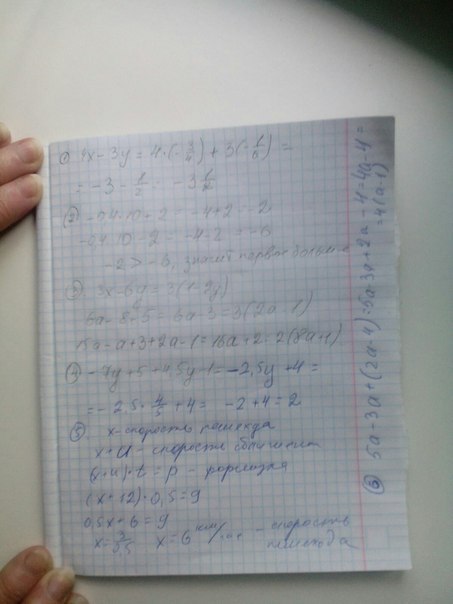 ① 4x - 3y = 4·(-3/4) + 3(-1/6) =
= -3 - 1/2 = -3 1/2
② -0,4·10+2 = -4+2 = -2
-0,4·10-2 = -4-2 = -6
-2 > -6, значит первое больше
③ 3x-6y = 3(x-2y)
6a-8+5 = 6a-3 = 3(2a-1)
15a-a+3+2a-1 = 16a+2 = 2(8a+1)
④ -7y+5+4,5y-1 = -2,5y+4 =
= -2,5·4/5+4 = -2+4 = 2
⑤ x-скорость пешехода
x+u - скорость сближения
(x+u)·t = p - формула
(x+12)·0,5=9
0,5x+6=9
x=3/0,5 x=6 км/час - скорость
пешехода
⑥ 5a-3a+(2a-4)=5a-3a+2a-4=4a-4=
=4(a-1)